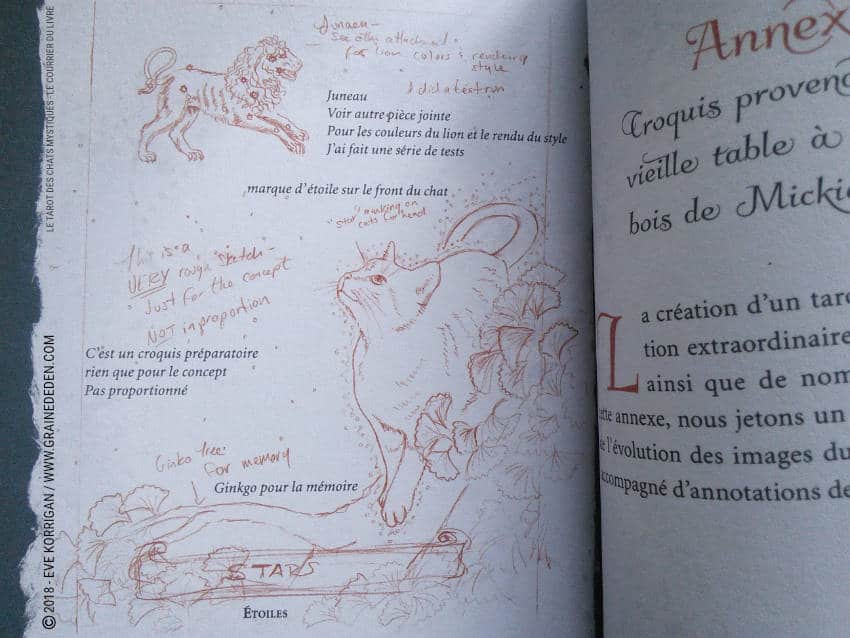 Juneau –
See other attachment
for lion colors & rendering
style
I did a test run
Juneau
Voir autre pièce jointe
Pour les couleurs du lion et le rendu du style
J'ai fait une série de tests
marque d'étoile sur le front du chat
"star" marking on
cats forhead
This is a
VERY rough "sketch" –
Just for the concept
NOT in proportion
C'ést un croquis préparatoire
rien que pour le concept
Pas proportionné
Ginko tree:
for memory
Ginkgo pour la mémoire
STARS
Étoiles
Annex
Croquis proven
vieille table à
bois de Micki
La création d'un tar
tion extraordinaire
ainsi que de nom
cette annexe, nous jetons un
de l'évolution des images du
accompagné d'annotations de
LE TAROT DES CHATS MYSTIQUES - LE COURRIER DU LIVRE
© 2018 - EVE KORRIGAN / WWW.GRAINEDEDEN.COM